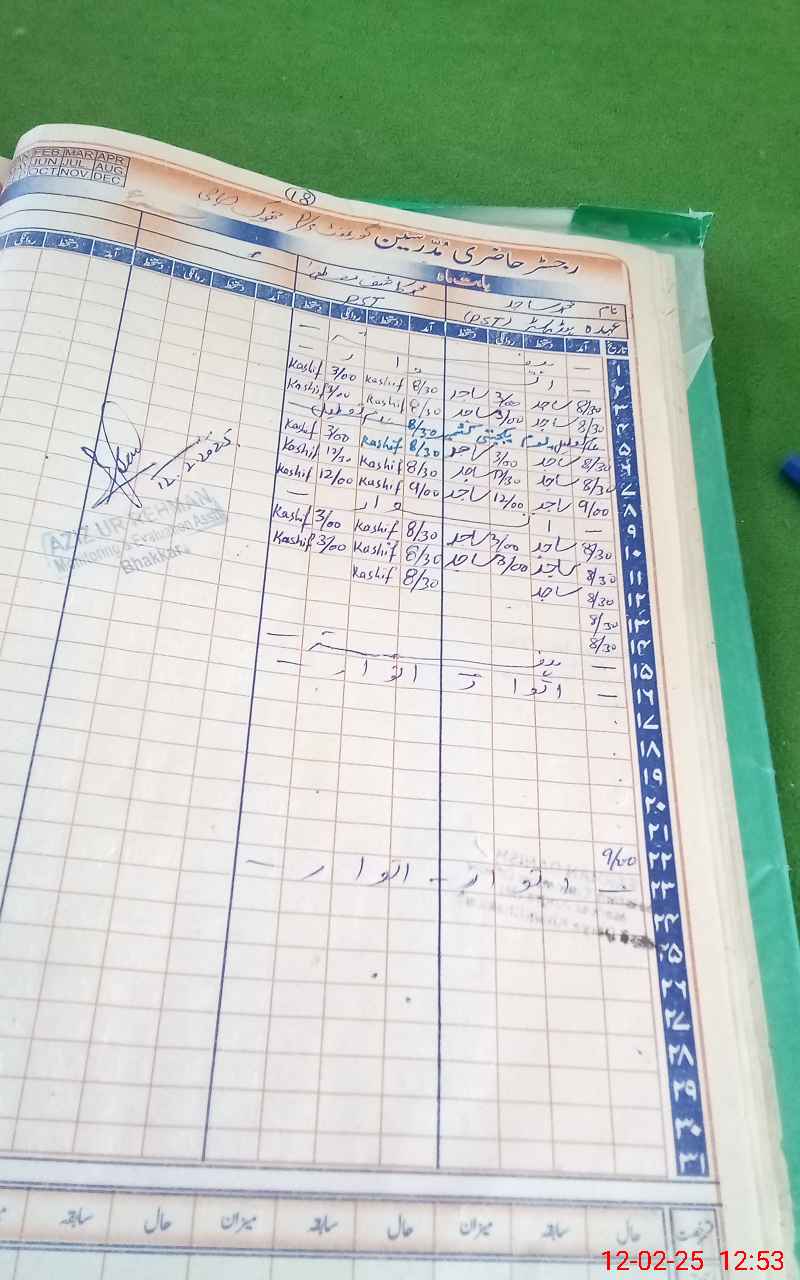 FEB MAR APR
JUN JUL AUG
OCT NOV DEC
(18)
رجسٹر حاضری مدرسین گورنمنٹ
بابت ماہ
نام محمد ساجد
عہدہ (PST) PST
تاریخ آمد دستخط روانگی دستخط آمد دستخط روانگی دستخط آمد دستخط روانگی دستخط آمد دستخط روانگی
۱
۲ — اتوار —
۳ 8/30 ساجد 3/00 ساجد 8/30 Kashif 3/00 Kashif
۴ 8/30 ساجد 3/00 ساجد 8/30 Kashif 3/00 Kashif
۵ یوم یکجہتی کشمیر
۶ 8/30 ساجد 3/00 ساجد 8/30 Kashif 3/00 Kashif
۷ 8/30 ساجد 12/30 ساجد 8/30 Kashif 12/30 Kashif
۸ 9/00 ساجد 12/00 ساجد 9/00 Kashif 12/00 Kashif
۹ — اتوار —
۱۰ 8/30 ساجد 3/00 ساجد 8/30 Kashif 3/00 Kashif
۱۱ 8/30 ساجد 3/00 ساجد 8/30 Kashif 3/00 Kashif
۱۲ 8/30 ساجد 8/30 Kashif
۱۳ 8/30
۱۴ 8/30
۱۵ —
۱۶ — اتوار — اتوار —
۱۷
۱۸
۱۹
۲۰
۲۱
۲۲ 9/00
۲۳ — اتوار - اتوار —
۲۴
۲۵
۲۶
۲۷
۲۸
۲۹
۳۰
۳۱
12-2-2025
AZIZ UR REHMAN
Monitoring & Evaluation Asstt
Bhakkar
رخصت حال سابقہ میزان حال سابقہ میزان حال سابقہ
12-02-25 12:53